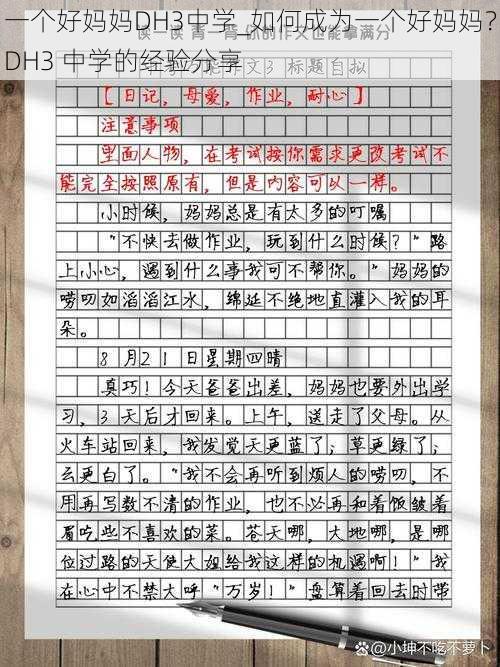 一个好妈妈DH3中学_如何成为一个好妈妈？
DH3 中学的经验分享
读一读 背一背 你的作文也能拿满分
作文3 标题自拟
【日记，母爱，作业，耐心】
注意事项
里面人物，在考试按你需求更改考试不
能完全按照原有，但是内容可以一样。
小时候，妈妈总是有太多的叮嘱
“不快去做作业，玩到什么时候？”路
上小心，遇到什么事我可不帮你。”妈妈的
唠叨如滔滔江水，绵延不绝地直灌入我的耳
朵。
8月21日星期四晴
真巧！今天爸爸出差，妈妈也要外出学
习，3天后才回来。上午，送走了父母。从
火车站回来，我发觉天更蓝了；草更绿了；
云更白了。“我不会再听到烦人的唠叨，不
用再写数不清的作业，也不必再和着饭皱着
眉吃些不喜欢的菜。苍天哪，大地哪，是哪
位过路的天使大姐给我这样的机遇啊！”我
在心中不禁大呼“万岁！”盘算着回去时带
小坤不吃不萝卜